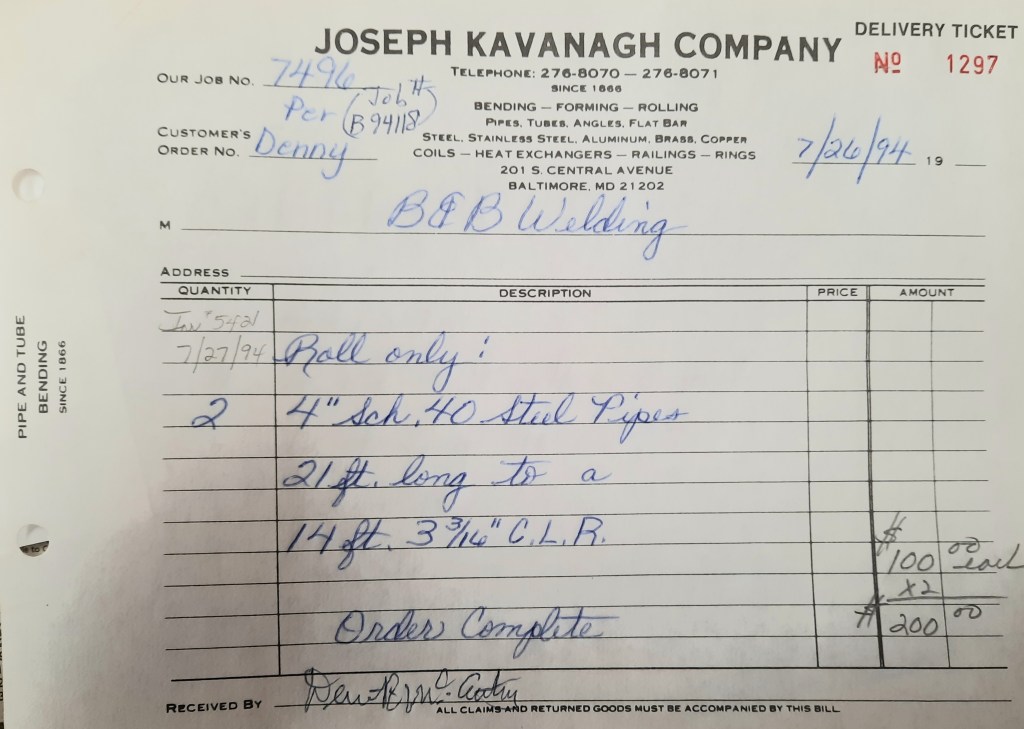 DELIVERY TICKET
JOSEPH KAVANAGH COMPANY
№ 1297
OUR JOB NO. 7496
TELEPHONE: 276-8070 — 276-8071
SINCE 1866
Per (Job # B94118)
BENDING — FORMING — ROLLING
PIPES, TUBES, ANGLES, FLAT BAR
CUSTOMER'S ORDER NO. Denny
STEEL, STAINLESS STEEL, ALUMINUM, BRASS, COPPER
COILS — HEAT EXCHANGERS — RAILINGS — RINGS
7/26/94 19
201 S. CENTRAL AVENUE
BALTIMORE, MD 21202
M B&B Welding
ADDRESS
QUANTITY DESCRIPTION PRICE AMOUNT
Inv # 5421
7/27/94 Roll only:
2 4" Sch. 40 Steel Pipes
21 ft. long to a
14 ft. 3 3/16" C.L.R.
$100 00 each
X2
$200 00
Order Complete
RECEIVED BY
ALL CLAIMS AND RETURNED GOODS MUST BE ACCOMPANIED BY THIS BILL
PIPE AND TUBE
BENDING
SINCE 1866